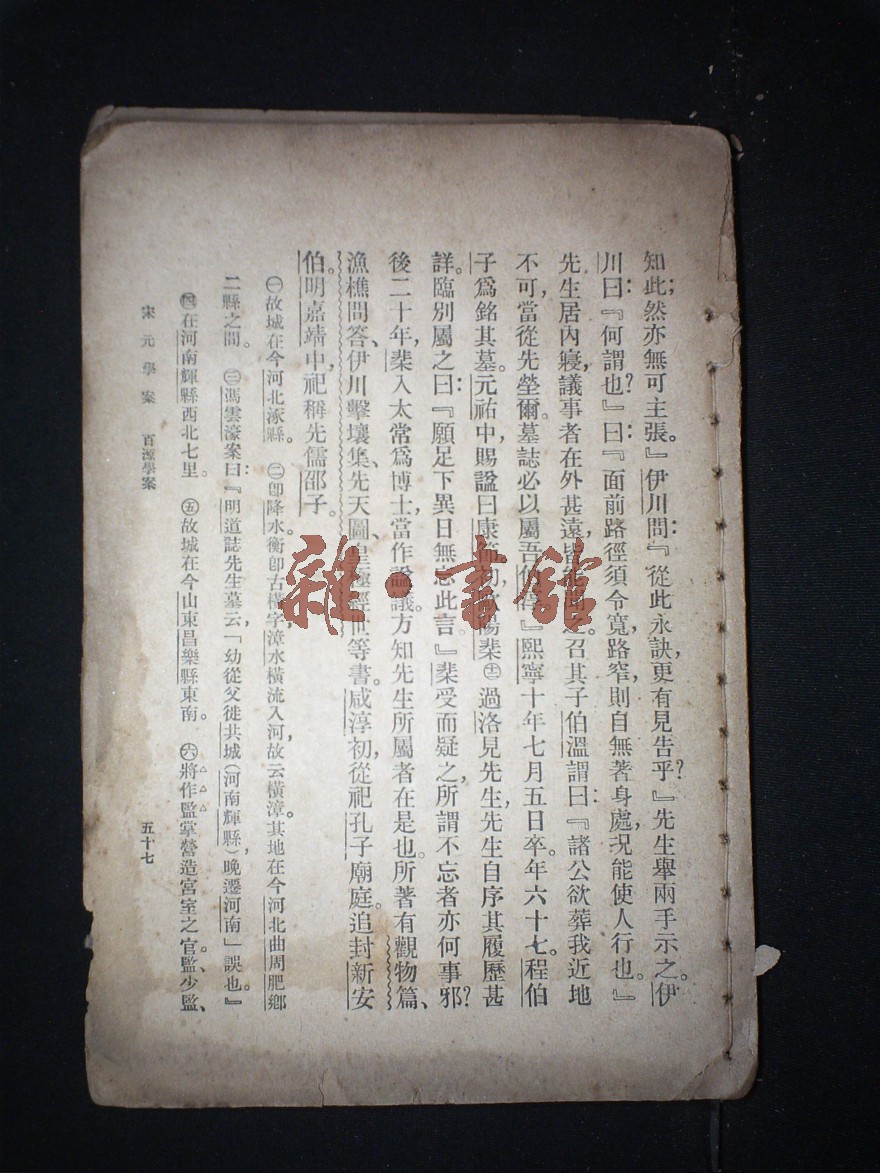 知此；然亦無可主張。』伊川問：『從此永訣，更有見告乎？』先生舉兩手示之。伊
川曰：『何謂也？』曰：『面前路徑須令寬，路窄，則自無著身處，況能使人行也。』
先生居內寢，議事者在外甚遠，皆能聞之。召其子伯溫謂曰：『諸公欲葬我近地
不可，當從先塋爾。墓誌必以屬吾伯淳。』熙寧十年七月五日卒。年六十七。程伯
子爲銘其墓。元祐中，賜謚曰康節。初，歐陽棐㊉過洛見先生，先生自序其履歷甚
詳。臨別屬之曰：『願足下異日無忘此言。』棐受而疑之，所謂不忘者亦何事邪？
後二十年，棐入太常爲博士，當作謚議。方知先生所屬者在是也。所著有觀物篇、
漁樵問答、伊川擊壤集、先天圖、皇極經世等書。咸淳初，從祀孔子廟庭。追封新安
伯。明嘉靖中，祀稱先儒邵子。
㊀故城在今河北涿縣。 ㊁卽降水。衡卽古橫字，漳水橫流入河，故云橫漳。其地在今河北曲周肥鄉
二縣之間。 ㊂馮雲濠案曰：『明道誌先生墓云，「幼從父徙共城（河南輝縣），晚遷河南」誤也。』
㊃在河南輝縣西北七里。 ㊄故城在今山東昌樂縣東南。 ㊅將作監掌營造宮室之官。監、少監、
宋元學案 百源學案 五十七
雜·書館